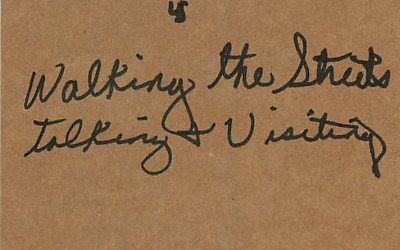 Walking the Streets
talking & Visiting